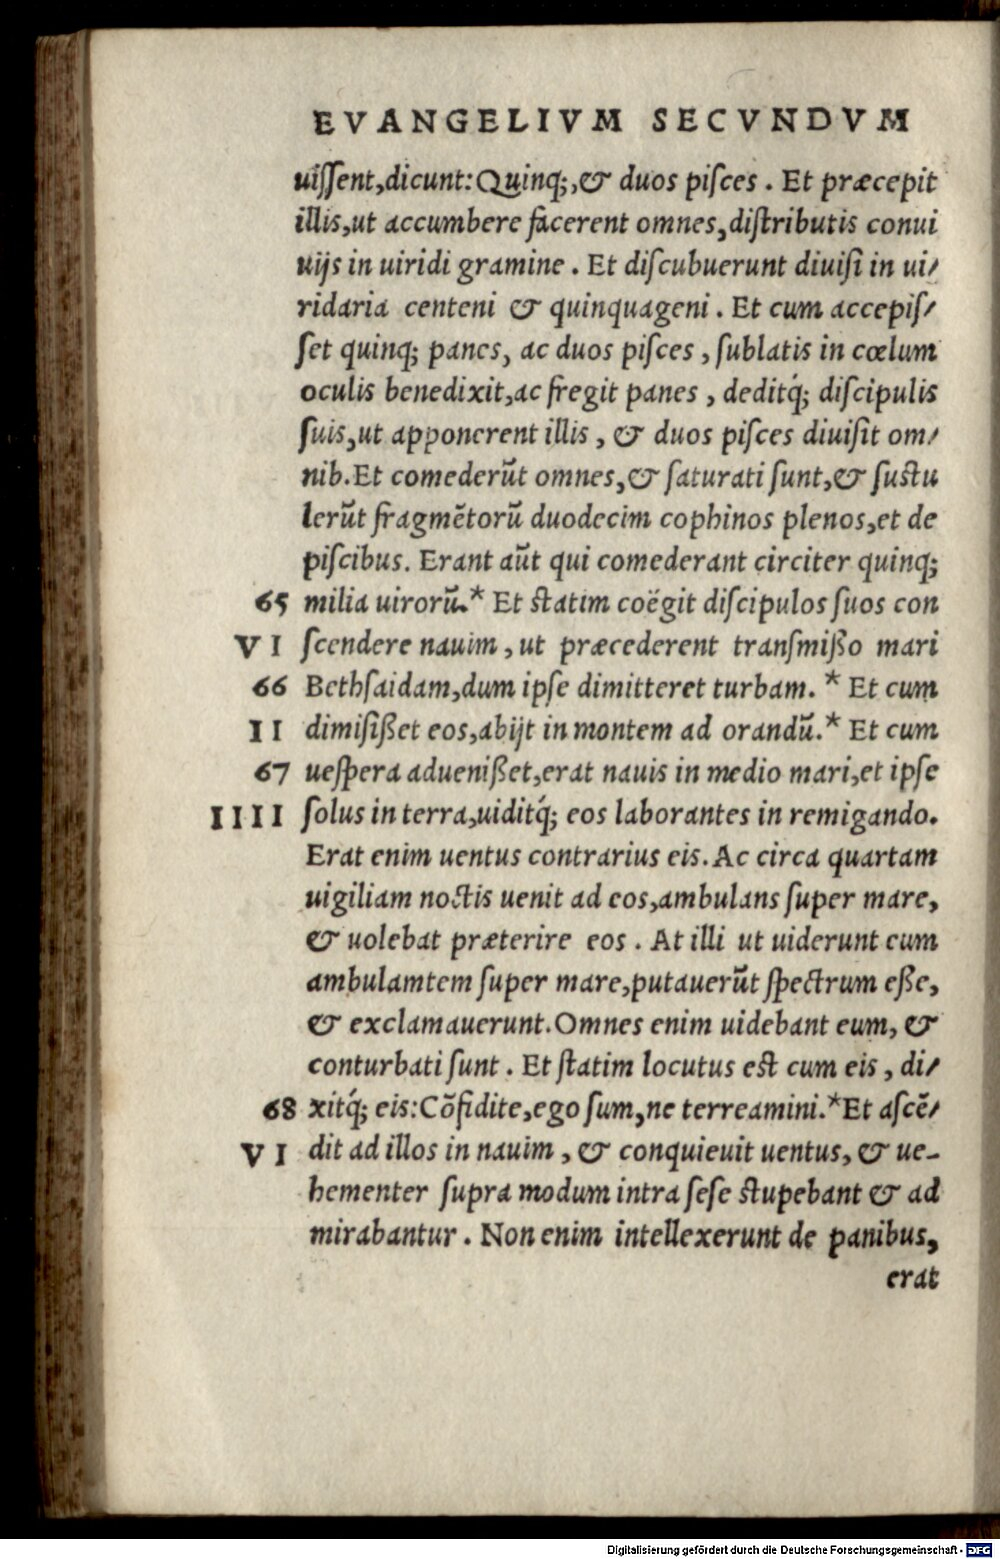 EVANGELIVM SECVNDVM
uiſſent,dicunt:Quinq;,& duos piſces. Et præcepit
illis,ut accumbere facerent omnes,diſtributis conui
uijs in uiridi gramine. Et diſcubuerunt diuiſi in ui/
ridaria centeni & quinquageni. Et cum accepiſ/
ſet quinq; panes, ac duos piſces, ſublatis in cœlum
oculis benedixit,ac fregit panes, deditq́; diſcipulis
ſuis,ut apponerent illis, & duos piſces diuiſit om/
nib. Et comederūt omnes,& ſaturati ſunt,& ſuſtu
lerūt fragmētorū duodecim cophinos plenos,et de
piſcibus. Erant aūt qui comederant circiter quinq;
65 milia uirorū.* Et ſtatim coëgit diſcipulos ſuos con
VI ſcendere nauim, ut præcederent tranſmiſſo mari
66 Bethſaidam,dum ipſe dimitteret turbam. * Et cum
II dimiſiſſet eos,abijt in montem ad orandū.* Et cum
67 ueſpera adueniſſet,erat nauis in medio mari,et ipſe
IIII ſolus in terra,uiditq́; eos laborantes in remigando.
Erat enim uentus contrarius eis. Ac circa quartam
uigiliam noctis uenit ad eos,ambulans ſuper mare,
& uolebat præterire eos. At illi ut uiderunt eum
ambulamtem ſuper mare,putauerūt ſpectrum eſſe,
& exclamauerunt.Omnes enim uidebant eum, &
conturbati ſunt. Et ſtatim locutus eſt cum eis, di/
68 xitq́; eis:Cōfidite,ego ſum,ne terreamini.*Et aſcē/
VI dit ad illos in nauim, & conquieuit uentus, & ue-
hementer ſupra modum intra ſeſe ſtupebant & ad
mirabantur. Non enim intellexerunt de panibus,
erat
Digitalisierung gefördert durch die Deutsche Forschungsgemeinschaft - DFG